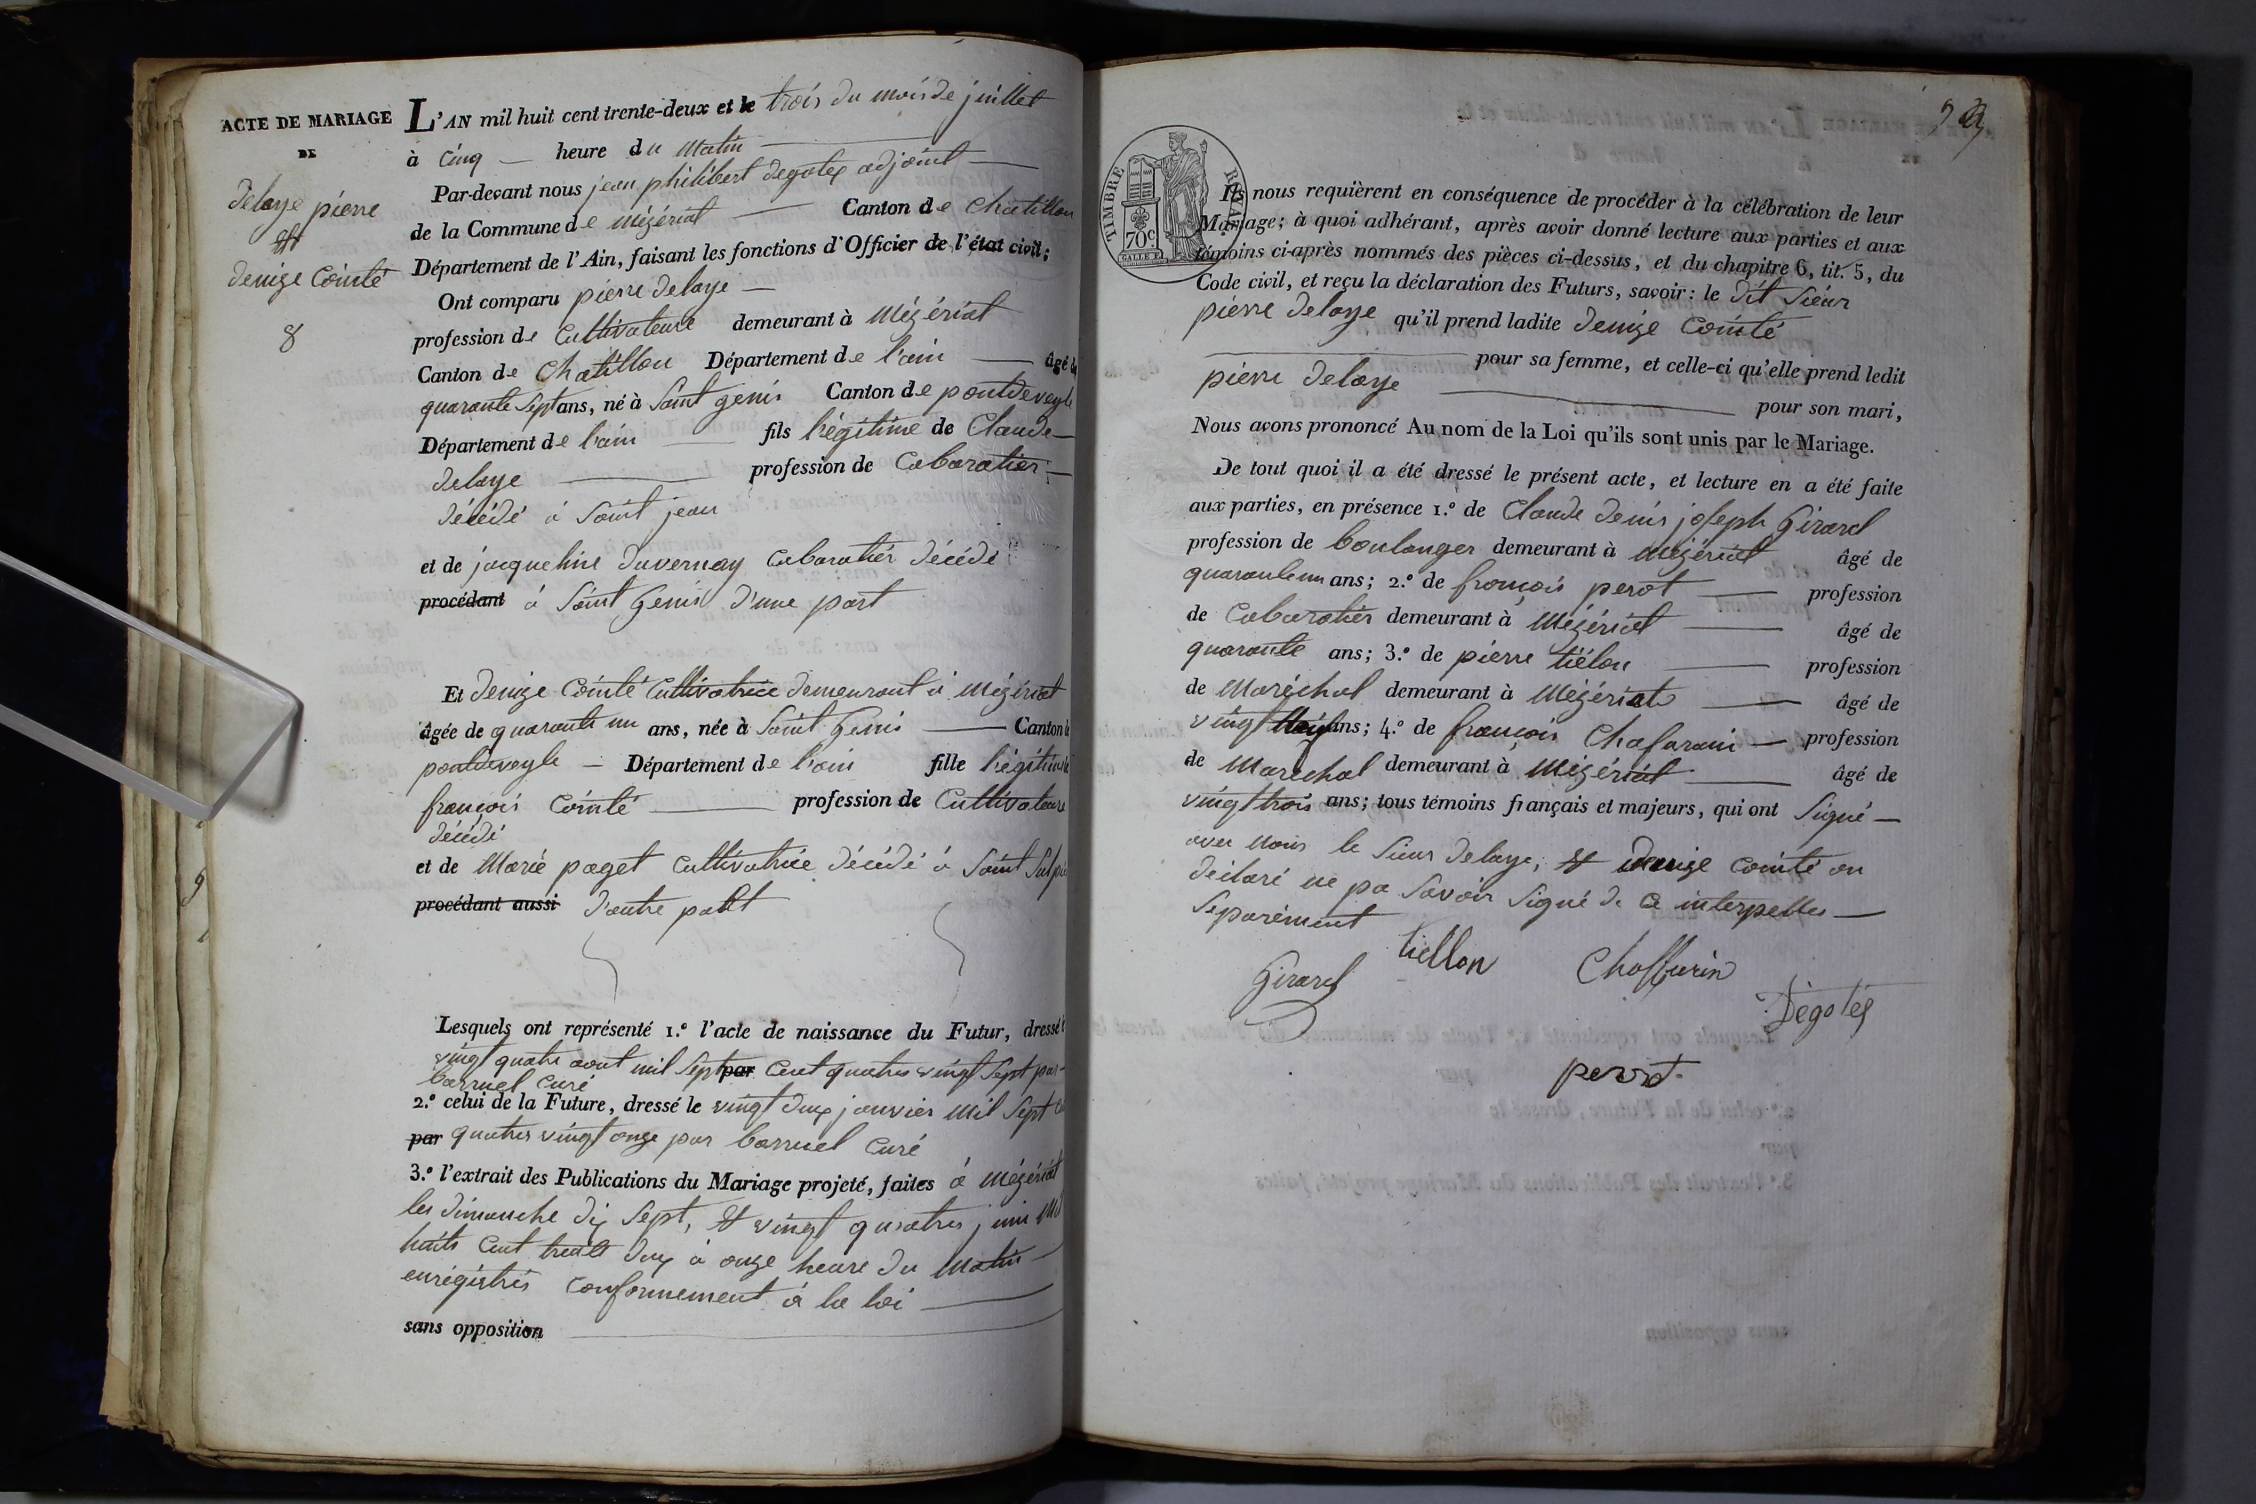 ACTE DE MARIAGE
DE
delaye pierre
et
denize Comté
8
L'AN mil huit cent trente-deux et le trois du mois de juillet
à Cinq heure du matin
Par-devant nous jean philibert degotex adjoint
de la Commune de mézériat Canton de Chatillon
Département de l'Ain, faisant les fonctions d'Officier de l'état civil;
Ont comparu pierre delaye
profession de Cultivateure demeurant à mézériat
Canton de Chatillon Département de l'ain âgé de
quarante sept ans, né à Saint genis Canton de pontdeveyle
Département de l'ain fils légitime de Claude
delaye profession de Cabaratier
décédé a Saint jean
et de jacqueline duvernay Cabaratiér décédé
procédant à Saint Genis d'une part
Et denize Comté Cultivatrice demeurant a mézériat
âgée de quarante un ans, née à Saint Genis Canton de
pontdeveyle Département de l'ain fille légitime de
françois Comté profession de Cultivateure
décédé
et de Marie paget Cultivatrice décédé à Saint Sulpi
procédant aussi d'autre part
Lesquels ont représenté 1.º l'acte de naissance du Futur, dressé
vingt quatre aout mil Sept par Cent quatres vingt Sept par
barruel Curé
2.º celui de la Future, dressé le vingt dux janvier mil Sept
par quatres vingt onze par barruel Curé
3.º l'extrait des Publications du Mariage projeté, faites à mézériat
les dimanche dix Sept, et vingt quatres juin mil
huits Cent trente dux à onze heure du matin
enrégistrés conformement à la loi
sans opposition
TIMBRE ROYAL
70 C
Ils nous requièrent en conséquence de procéder à la célébration de leur
Mariage; à quoi adhérant, après avoir donné lecture aux parties et aux
témoins ci-après nommés des pièces ci-dessus, et du chapitre 6, tit. 5, du
Code civil, et reçu la déclaration des Futurs, savoir: le dit Sieur
pierre delaye qu'il prend ladite denize Comté
pour sa femme, et celle-ci qu'elle prend ledit
pierre delaye pour son mari,
Nous avons prononcé Au nom de la Loi qu'ils sont unis par le Mariage.
De tout quoi il a été dressé le présent acte, et lecture en a été faite
aux parties, en présence 1.º de Claude denis joseph Girard
profession de boulanger demeurant à mézériat âgé de
quaranteun ans; 2.º de françois perot profession
de Cabaratier demeurant à mézériat âgé de
quarante ans; 3.º de pierre tiélon profession
de Maréchal demeurant à Mézériat âgé de
vingt ans; 4.º de françois Chafurain profession
de Marechal demeurant à Mézériat âgé de
vingt trois ans; tous témoins français et majeurs, qui ont Signé
avec nous le Sieur delaye, et denize Comté on
déclaré ne pa Savoir Signé de Ce interpelles
Separément
Girard tiellon Chaffurin
Dégotex
perrot